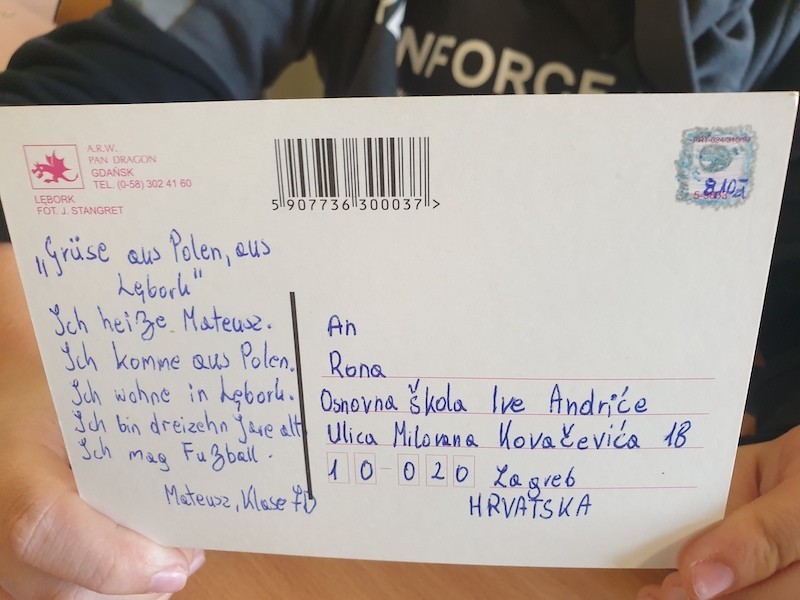 NFORCE
A.R.W.
PAN DRAGON
GDAŃSK
TEL. (0-58) 302 41 60
LĘBORK
FOT. J. STANGRET
5 907736 300037 >
„Grüse aus Polen, aus
Lębork"
Ich heiße Mateusz.
Ich komme aus Polen.
Ich wohne in Lębork.
Ich bin dreizehn Jare alt
Ich mag Fußball.
Mateusz, Klase 7D
An
Rona
Osnovna škola Ive Andriće
Ulica Milovana Kovačevića 18
10-020 Zagreb
HRVATSKA